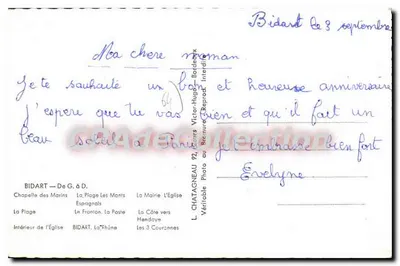 Bidart le 3 septembre
Ma chere maman
Je te souhaite un bon et heureuse anniversaire
j'espere que tu vas bien et qu'il fait un
beau soleil a Je t'embrasse bien fort
Evelyne
BIDART — De G. à D.
Chapelle des Marins La Plage Les Morts Espagnols La Mairie L'Eglise
La Plage Le Fronton. La Poste La Côte vers Hendaye
Intérieur de l'Eglise BIDART. La Rhune Les 3 Couronnes
L. CHATAGNEAU 92, Victor-Hugo - Bordeaux
Véritable Photo au Bromure - Reprod. Interdite